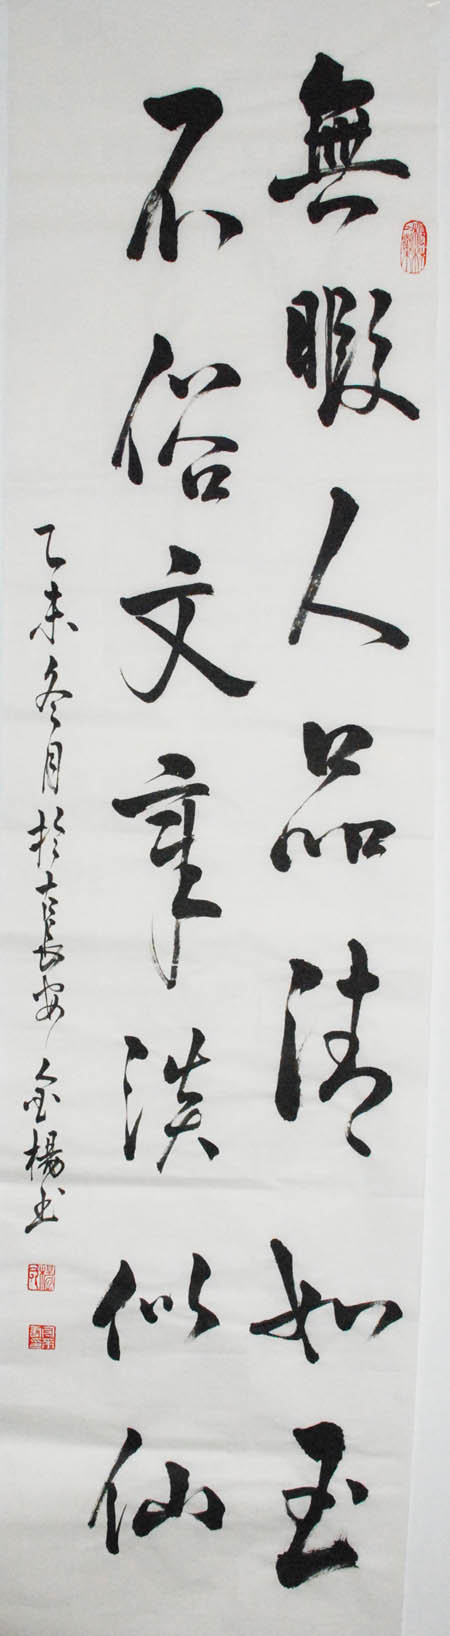 無暇人品清如玉
不俗文章淡似仙
乙未冬月於古長安金楊书